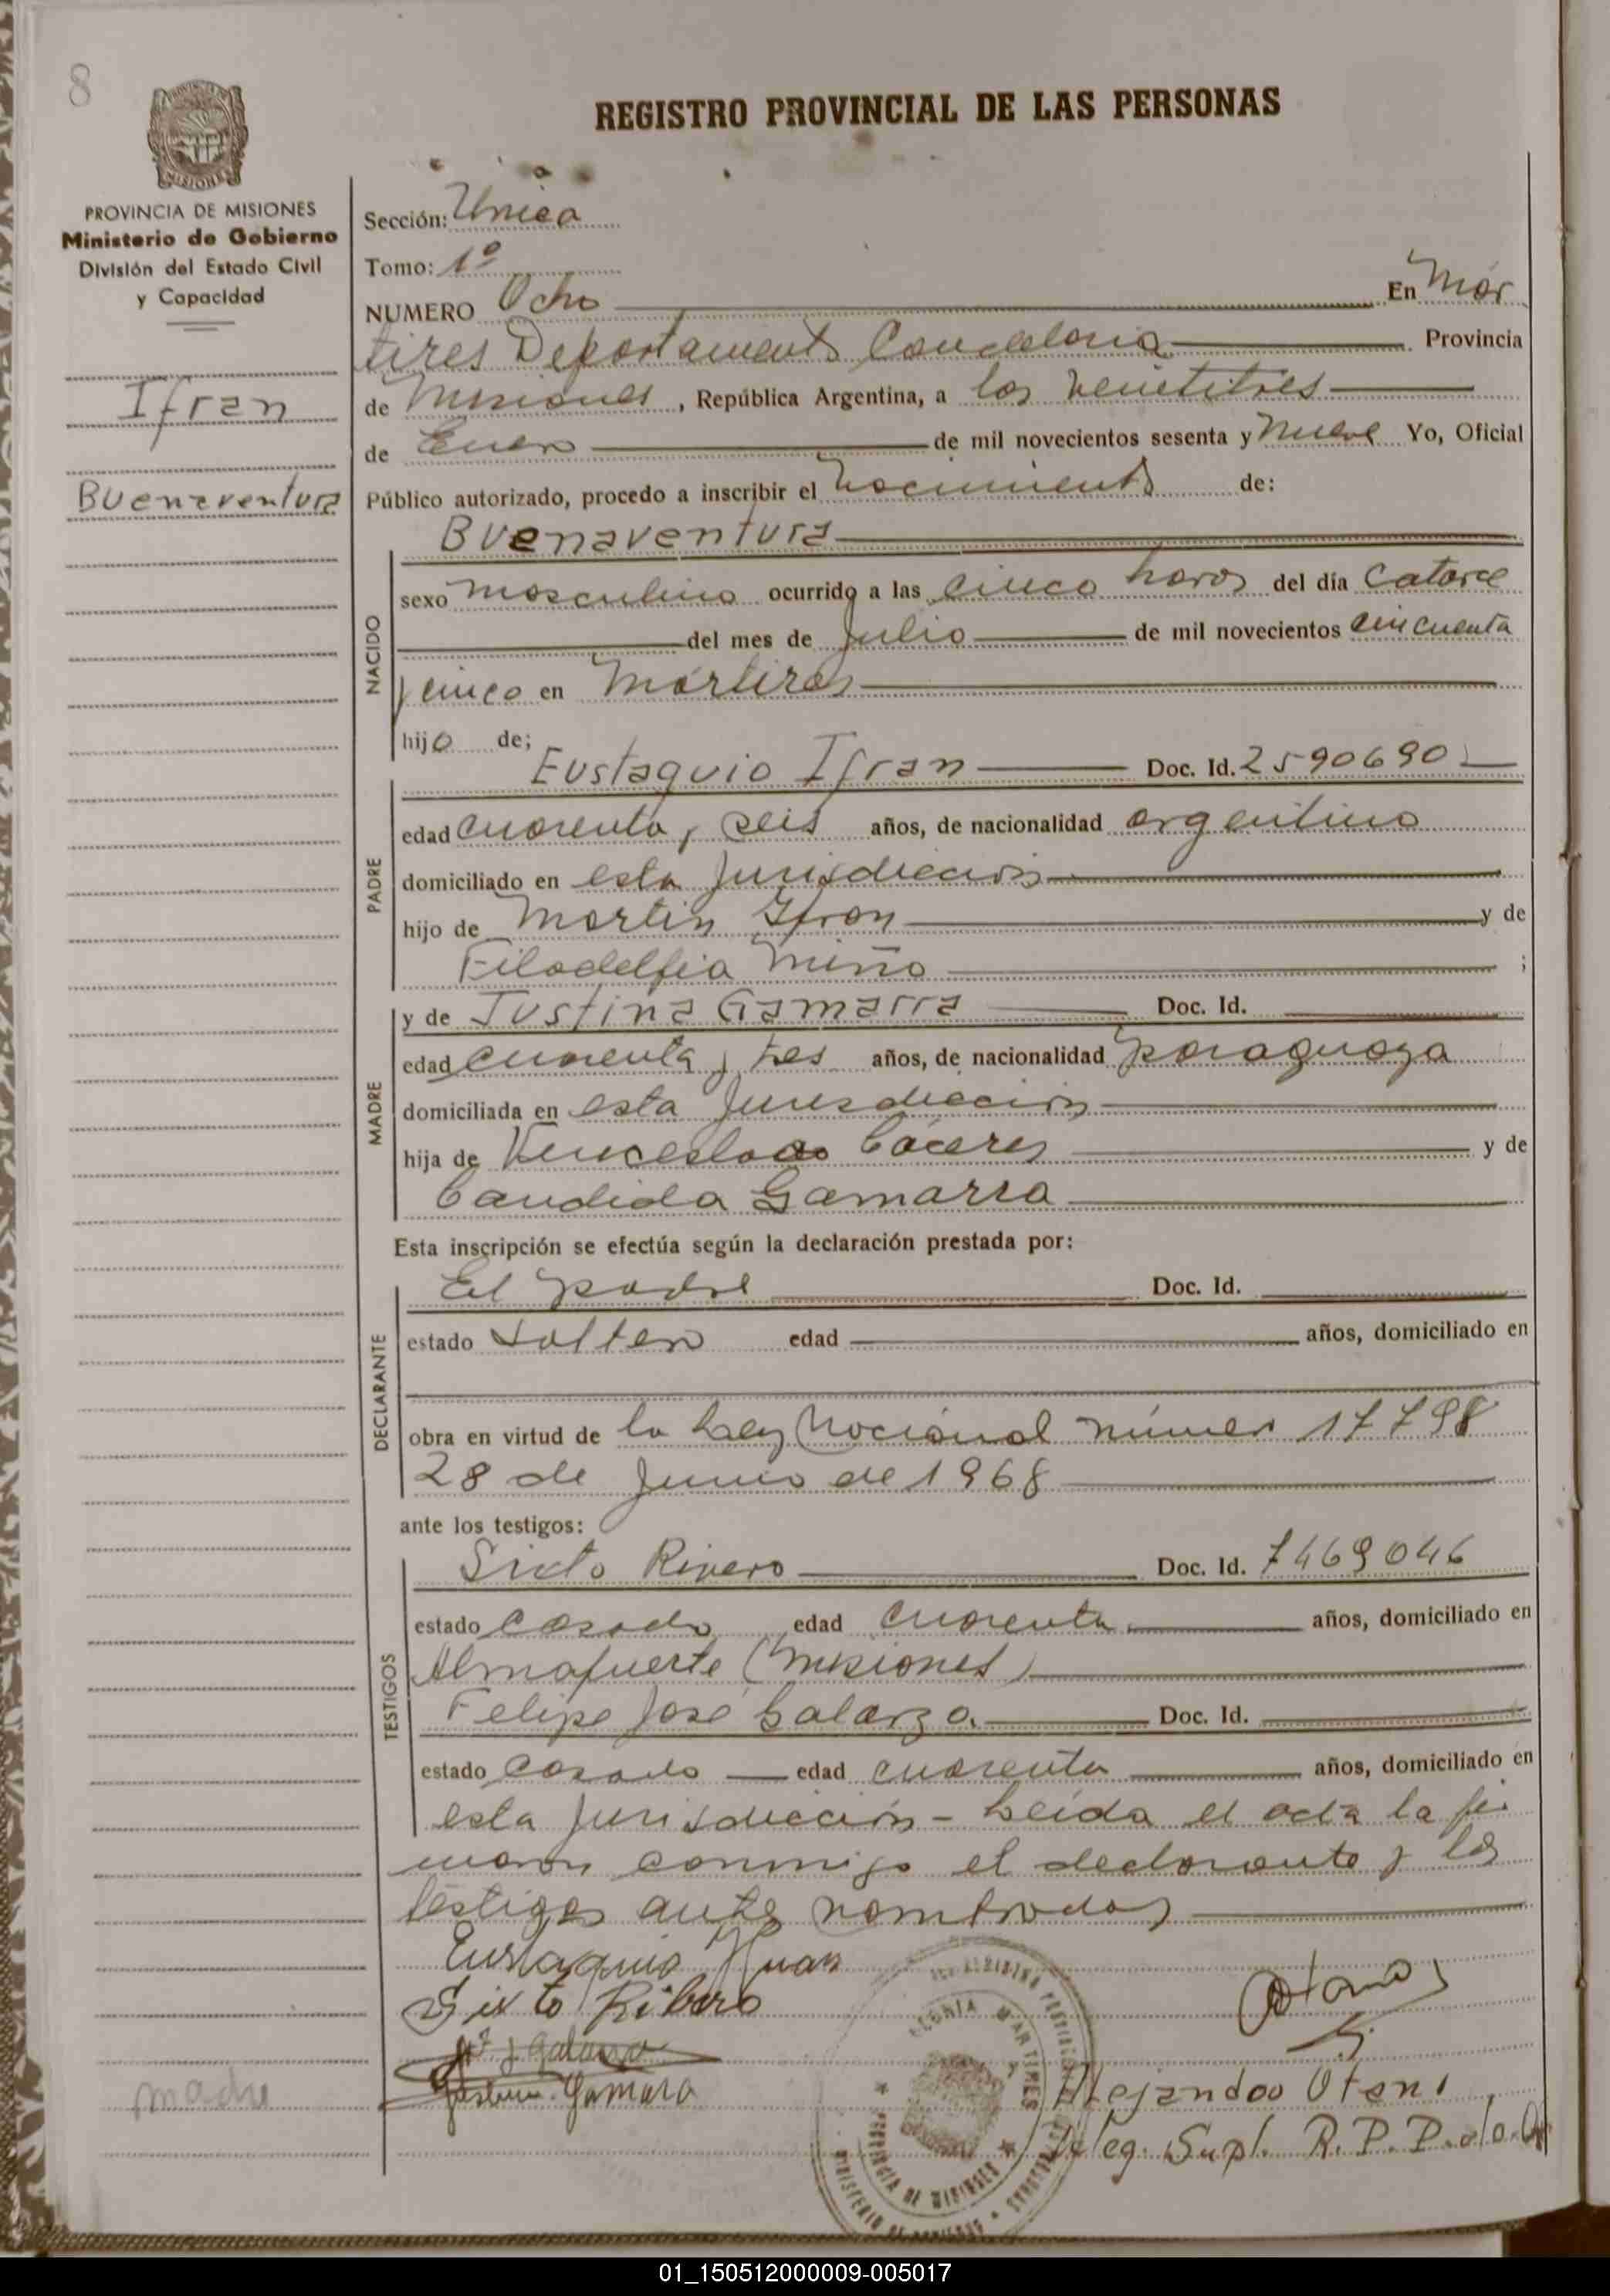 8
REGISTRO PROVINCIAL DE LAS PERSONAS
MISIONES
PROVINCIA DE MISIONES
Ministerio de Gobierno
División del Estado Civil
y Capacidad
Ifran
Buenaventura
Sección: Unica
Tomo: 1º
NUMERO Ocho En Már
tires Departamento Candelaria Provincia
de Misiones, República Argentina, a los veintitres
de Enero de mil novecientos sesenta y nueve Yo, Oficial
Público autorizado, procedo a inscribir el nacimiento de:
NACIDO
Buenaventura
sexo masculino ocurrido a las cinco horas del día catorce
del mes de Julio de mil novecientos cincuenta
y cinco en Mártires
hijo de;
PADRE
Eustaquio Ifran Doc. Id. 2590690
edad cuarenta y seis años, de nacionalidad argentino
domiciliado en esta Jurisdicción
hijo de Martin Ifran y de
Filadelfia Miño ;
MADRE
y de Justina Gamarra Doc. Id.
edad cuarenta y tres años, de nacionalidad paraguaya
domiciliada en esta Jurisdicción
hija de Venceslao Cáceres y de
Candida Gamarra
Esta inscripción se efectúa según la declaración prestada por:
DECLARANTE
El padre Doc. Id.
estado soltero edad años, domiciliado en
obra en virtud de la Ley Nacional número 17798
28 de Junio de 1968
ante los testigos:
TESTIGOS
Sixto Rivero Doc. Id. 7469046
estado casado edad cuarenta años, domiciliado en
Almafuerte (Misiones)
Felipe José Galarza Doc. Id.
estado casado edad cuarenta años, domiciliado en
esta Jurisdicción - Leída el acta la fir
maron conmigo el declarante y los
testigos antes nombrados
Eustaquio Ifran
Sixto Ribero
Galarza
Gamara
madre
MARTIRES
PROVINCIA DE MISIONES
Alejandro Otano
Deleg. Supl. R.P.P. de
01_150512000009-005017